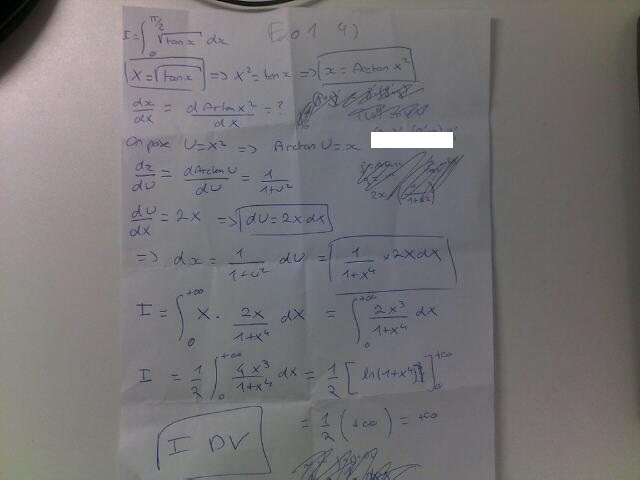 I = ∫₀^{π/2} √tan x dx Exo 1 4)
X = √tan x ⇒ X² = tan x ⇒ x = Arctan X²
dx/dX = dArctan X²/dX = ?
On pose U = X² ⇒ Arctan U = x
dx/dU = dArctan U/dU = 1/(1+U²)
dU/dX = 2X ⇒ dU = 2X dX
⇒ dx = 1/(1+U²) dU = 1/(1+X⁴) × 2X dX
I = ∫₀^{+∞} X · 2X/(1+X⁴) dX = ∫₀^{+∞} 2X³/(1+X⁴) dX
I = 1/2 ∫₀^{+∞} 4X³/(1+X⁴) dX = 1/2 [ln(1+X⁴)]₀^{+∞}
= 1/2 (+∞) = +∞
I DV